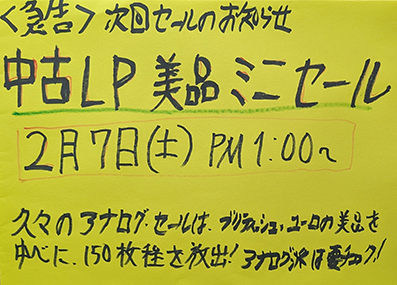 <急告> 次回セールのお知らせ
中古LP 美品 ミニ セール
2月7日(土) PM1:00〜
久々のアナログ・セールは、ブリティッシュ、ユーロの美品を
中心に、150枚程を放出! アナログ派は要チェック!